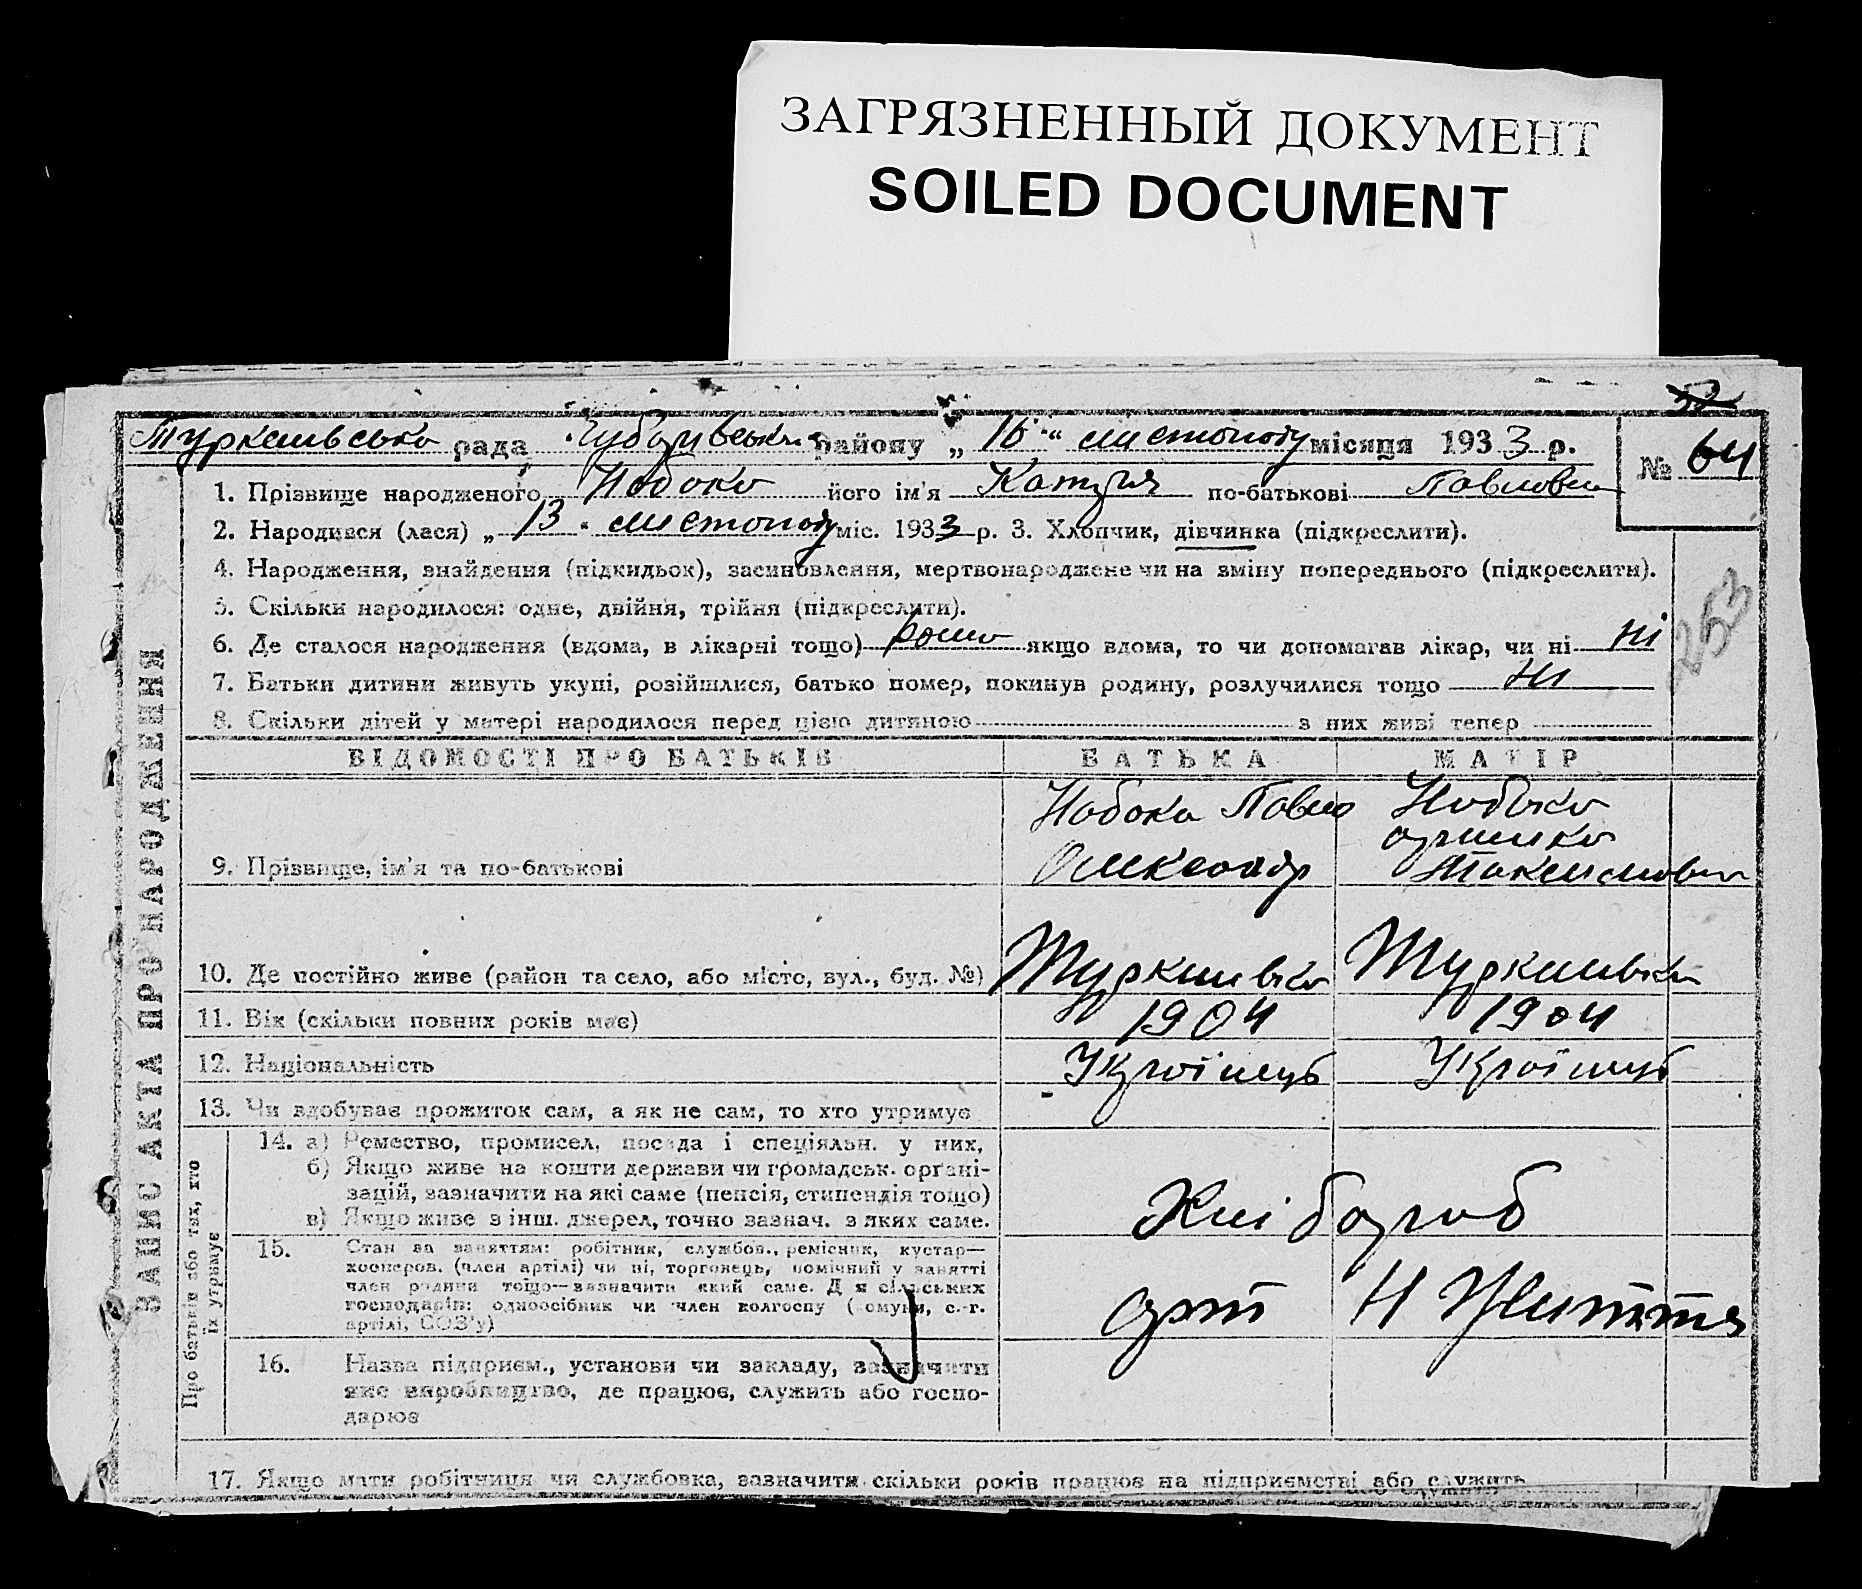 ЗАГРЯЗНЕННЫЙ ДОКУМЕНТ
SOILED DOCUMENT
52
рада району „ 16 “ листопаду місяця 1933 р.
№ 64
1. Прізвище народженого Набока його ім'я по-батькові Павловна
2. Народився (лася) „ 13 " листопаду міс. 1933 р. 3. Хлопчик, дівчинка (підкреслити).
4. Народження, знайдення (підкидьок), засиновлення, мертвонароджене чи на зміну попереднього (підкреслити).
5. Скільки народилося: одне, двійня, трійня (підкреслити).
6. Де сталося народження (вдома, в лікарні тощо) якщо вдома, то чи допомагав лікар, чи ні ні
7. Батьки дитини живуть укупі, розійшлися, батько помер, покинув родину, розлучилися тощо ні
8. Скільки дітей у матері народилося перед цією дитиною з них живі тепер
253
ЗАПИС АКТА ПРО НАРОДЖЕННЯ
ВІДОМОСТІ ПРО БАТЬКІВ БАТЬКА МАТІР
9. Прізвище, ім'я та по-батькові Набока Павло Набока
10. Де постійно живе (район та село, або місто, вул., буд. №)
11. Вік (скільки повних років має) 1904 1904
12. Національність Українць Українць
13. Чи здобуває прожиток сам, а як не сам, то хто утримує
Про батьків або тих, хто
їх утримує
14. а) Ремество, промисел, посада і спеціяльн. у них,
б) Якщо живе на кошти держави чи громадськ. органі-
зацій, зазначити на які саме (пенсія, стипендія тощо)
в) Якщо живе з інш. джерел, точно зазнач. з яких саме.
Хлібороб
15. Стан за заняттям: робітник, службов., ремісник, кустар—
кооперов. (член артілі) чи ні, торговець, помічний у занятті
член родини тощо—зазначити який саме. Для сільських
господарів: одноосібник чи член колгоспу (комуни, с.-г.
артілі, СОЗ'у)
арт Н Життя
16. Назва підприєм., установи чи закладу, зазначити
яке виробництво, де працює, служить або госпо-
дарює
17. Якщо мати робітниця чи службовка, зазначити скільки років працює на підприємстві або служить